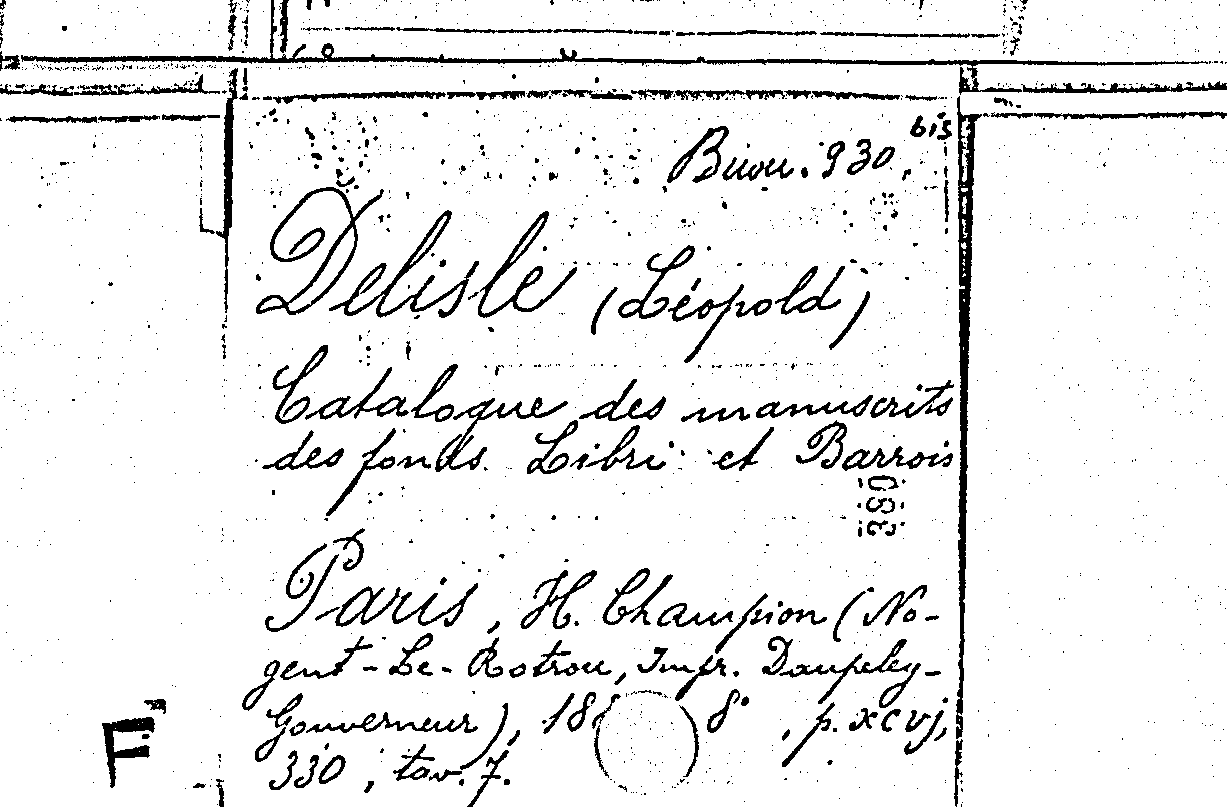 930 bis
Delisle (Léopold)
Catalogue des manuscrits
des fonds Libri et Barrois
380
Paris, H. Champion (No-
gent-Le-Rotrou, Impr. Daupeley-
Gouverneur), 8°, p. xcvj,
330, tav. 7.
F